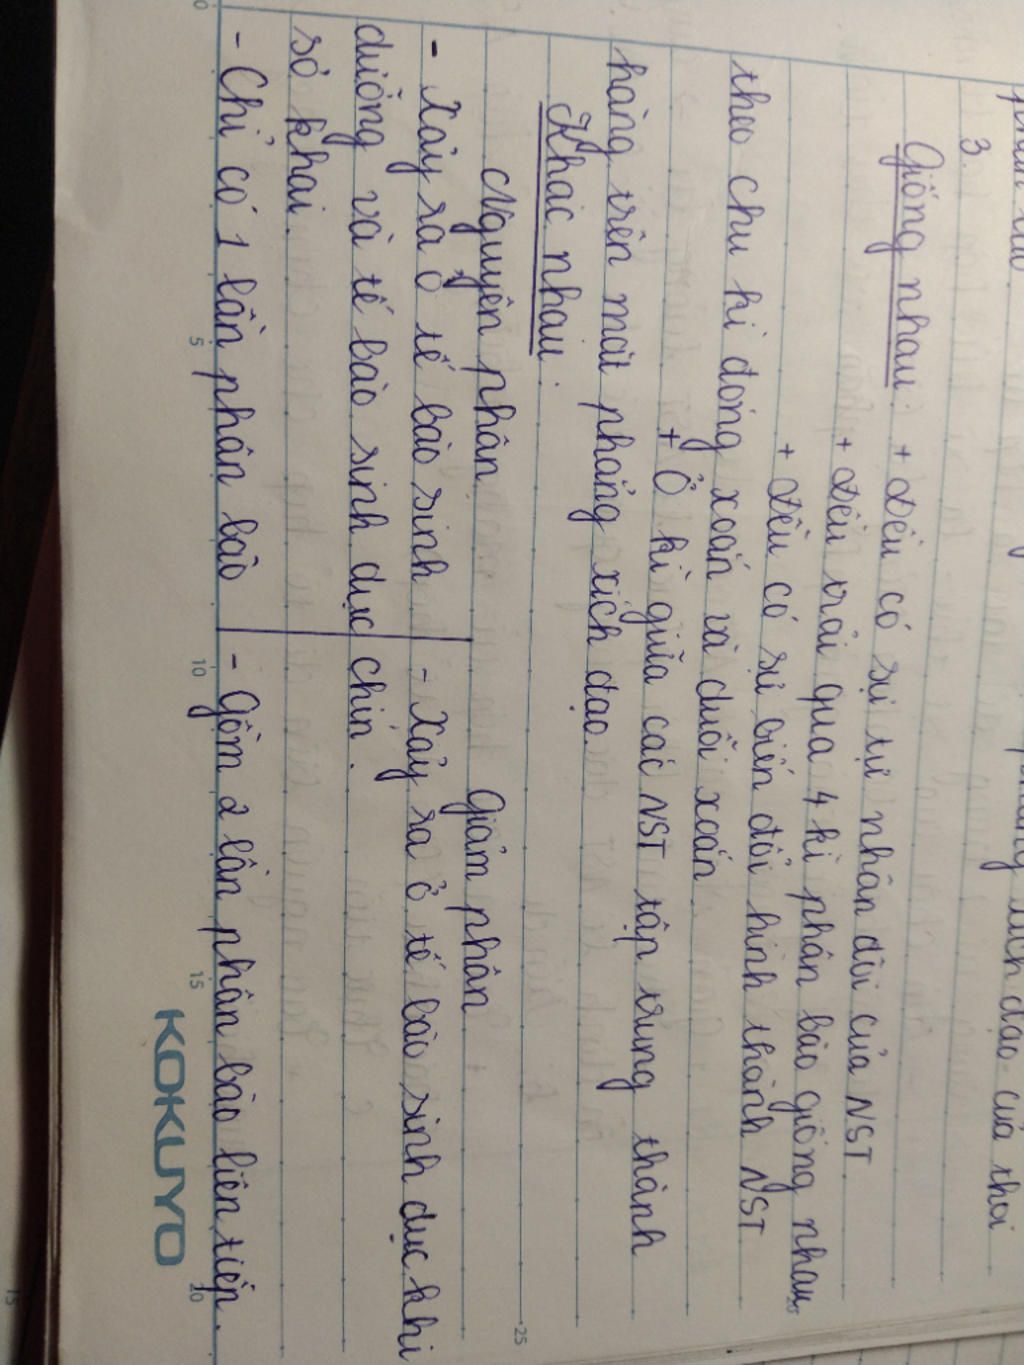 thời
3.
Giống nhau: + Đều có sự tự nhân đôi của NST
+ Đều trải qua 4 kì phân bào giống nhau
+ Đều có sự biến đổi hình thành NST
theo chu kì đóng xoắn và duỗi xoắn
+ Ở kì giữa các NST tập trung thành
hàng trên mặt phẳng xích đạo.
Khác nhau:
Nguyên phân Giảm phân
- Xảy ra ở tế bào sinh - Xảy ra ở tế bào sinh dục khi
dưỡng và tế bào sinh dục chín.
sơ khai.
- Chỉ có 1 lần phân bào - Gồm 2 lần phân bào liên tiếp.
5 10 15 20
25
KOKUYO